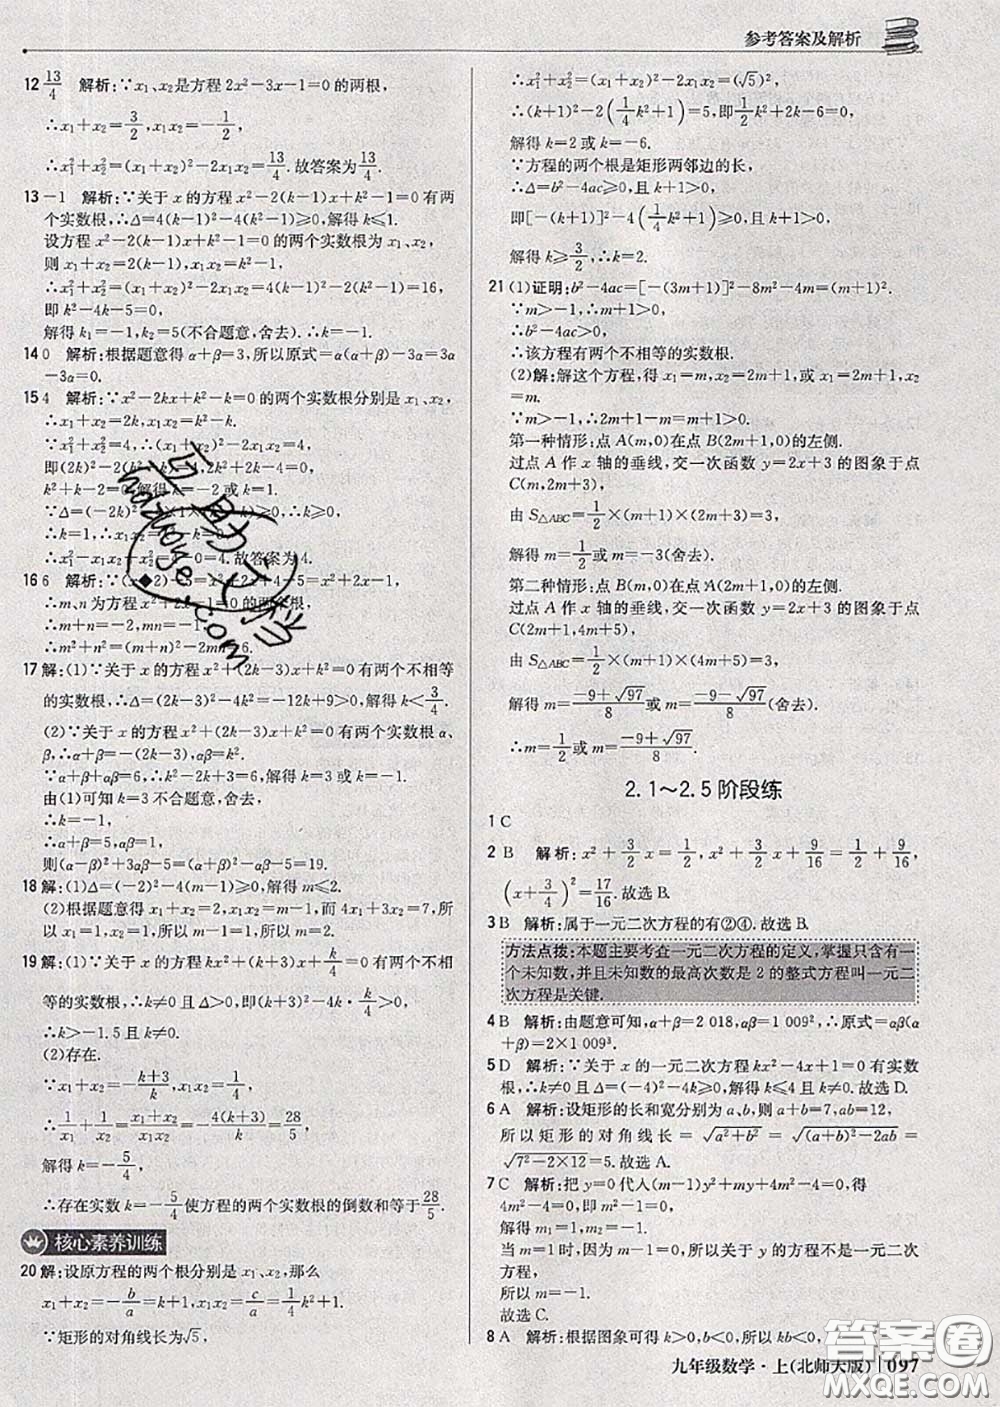 参考答案及解析
12 13/4 解析:∵x₁、x₂是方程 2x²-3x-1=0 的两根,
∴x₁+x₂=3/2, x₁x₂=-1/2.
∴x₁²+x₂²=(x₁+x₂)²-2x₁x₂=13/4. 故答案为13/4.
13 -1 解析:∵关于 x 的方程 x²-2(k-1)x+k²-1=0 有两
个实数根,∴Δ=4(k-1)²-4(k²-1)≥0,解得 k≤1.
设方程 x²-2(k-1)x+k²-1=0 的两个实数根为 x₁、x₂,
则 x₁+x₂=2(k-1), x₁x₂=k²-1,
∴x₁²+x₂²=(x₁+x₂)²-2x₁x₂=4(k-1)²-2(k²-1)=16,
即 k²-4k-5=0,
解得 k₁=-1,k₂=5(不合题意,舍去).∴k=-1.
14 0 解析:根据题意得 α+β=3,所以原式=α(α+β)-3α=3α
-3α=0.
15 4 解析:∵x²-2kx+k²-k=0 的两个实数根分别是 x₁、x₂,
∴x₁+x₂=2k, x₁x₂=k²-k.
∵x₁²+x₂²=4,∴(x₁+x₂)²-2x₁x₂=4.
即(2k)²-2(k²-k)=4,2k²+2k=4,
k²+k-2=0.解得 k=-2 或 k=1.
∵Δ=(-2k)²-4×1×(k²-k)≥0,∴k≥0.
∴k=1,∴x₁x₂=k²-k=0,
∴x₁²-x₁x₂+x₂²=4-0=4.故答案为 4.
16 6 解析:∵(x◆2)-5=x²+2x+4-5=x²+2x-1,
∴m、n 为方程 x²+2x-1=0 的两个根,
∴m+n=-2,mn=-1,
∴m²+n²=(m+n)²-2mn=6.
17 解:(1)∵关于 x 的方程 x²+(2k-3)x+k²=0 有两个不相等
的实数根,∴Δ=(2k-3)²-4k²=-12k+9>0,解得 k<3/4.
(2)∵关于 x 的方程 x²+(2k-3)x+k²=0 有两个实数根 α、
β,∴α+β=-(2k-3),αβ=k².
∵α+β+αβ=6,∴k²-2k+3=6,解得 k=3 或 k=-1.
由(1)可知 k=3 不合题意,舍去,
∴k=-1,
∴α+β=5,αβ=1,
则(α-β)²+3αβ-5=(α+β)²-αβ-5=19.
18 解:(1)Δ=(-2)²-4(m-1)≥0,解得 m≤2.
(2)根据题意得 x₁+x₂=2,x₁x₂=m-1,而 4x₁+3x₂=7,所
以 x₁=1,x₂=1,所以 m-1=1×1,所以 m=2.
19 解:(1)∵关于 x 的方程 kx²+(k+3)x+k/4=0 有两个不相
等的实数根,∴k≠0 且 Δ=(k+3)²-4k·k/4>0,
∴k>-1.5 且 k≠0.
(2)存在.
∵x₁+x₂=-(k+3)/k, x₁x₂=1/4,
∴1/x₁+1/x₂=(x₁+x₂)/(x₁x₂)=-4(k+3)/k=28/5,
解得 k=-5/4,
∴存在实数 k=-5/4使方程的两个实数根的倒数和等于28/5.
核心素养训练
20 解:设原方程的两个根分别是 x₁、x₂,那么
x₁+x₂=-b/a=k+1, x₁x₂=c/a=1/4k²+1.
∵矩形的对角线长为√5,
∴x₁²+x₂²=(x₁+x₂)²-2x₁x₂=(√5)²,
∴(k+1)²-2(1/4k²+1)=5,即1/2k²+2k-6=0,
解得 k=2 或 k=-6.
∵方程的两个根是矩形两邻边的长,
∴Δ=b²-4ac≥0,且 k+1>0,
即[-(k+1)]²-4(1/4k²+1)≥0,且 k+1>0,
解得 k≥3/2,∴k=2.
21 (1)证明:b²-4ac=[-(3m+1)]²-8m²-4m=(m+1)².
∵m>-1,∴m+1>0,
∴b²-4ac>0,
∴该方程有两个不相等的实数根.
(2)解:解这个方程,得 x₁=m,x₂=2m+1,或 x₁=2m+1,x₂
=m.
∵m>-1,∴m+1>0,∴2m+1>m.
第一种情形:点 A(m,0)在点 B(2m+1,0)的左侧.
过点 A 作 x 轴的垂线,交一次函数 y=2x+3 的图象于点
C(m,2m+3),
由 S△ABC=1/2×(m+1)×(2m+3)=3,
解得 m=1/2或 m=-3(舍去).
第二种情形:点 B(m,0)在点 A(2m+1,0)的左侧.
过点 A 作 x 轴的垂线,交一次函数 y=2x+3 的图象于点
C(2m+1,4m+5),
由 S△ABC=1/2×(m+1)×(4m+5)=3,
解得 m=(-9+√97)/8或 m=(-9-√97)/8(舍去).
∴m=1/2或 m=(-9+√97)/8.
2.1～2.5 阶段练
1 C
2 B 解析:x²+3/2x=1/2, x²+3/2x+9/16=1/2+9/16,
(x+3/4)²=17/16.故选 B.
3 B 解析:属于一元二次方程的有②④.故选 B.
方法点拨:本题主要考查一元二次方程的定义,掌握只含有一
个未知数,并且未知数的最高次数是 2 的整式方程叫一元二
次方程是关键.
4 B 解析:由题意可知,α+β=2 018,αβ=1 009²,∴原式=αβ(α
+β)=2×1 009³.
5 D 解析:∵关于 x 的一元二次方程 kx²-4x+1=0 有实数
根,∴k≠0 且 Δ=(-4)²-4k≥0,解得 k≤4 且 k≠0.故选 D.
6 A 解析:设矩形的长和宽分别为 a、b,则 a+b=7,ab=12,
所以矩形的对角线长=√(a²+b²)=√((a+b)²-2ab)=
√(7²-2×12)=5.故选 A.
7 C 解析:把 y=0 代入(m-1)y²+my+4m²-4=0,得
4m²-4=0,
解得 m₁=1,m₂=-1.
当 m=1 时,因为 m-1=0,所以关于 y 的方程不是一元二次
方程,
所以 m=-1.
故选 C.
8 A 解析:根据图象可得 k>0,b<0,所以 kb<0.
九年级数学·上(北师大版) 097
互助文档
huzhuge.com
答案圈
MXQE.COM